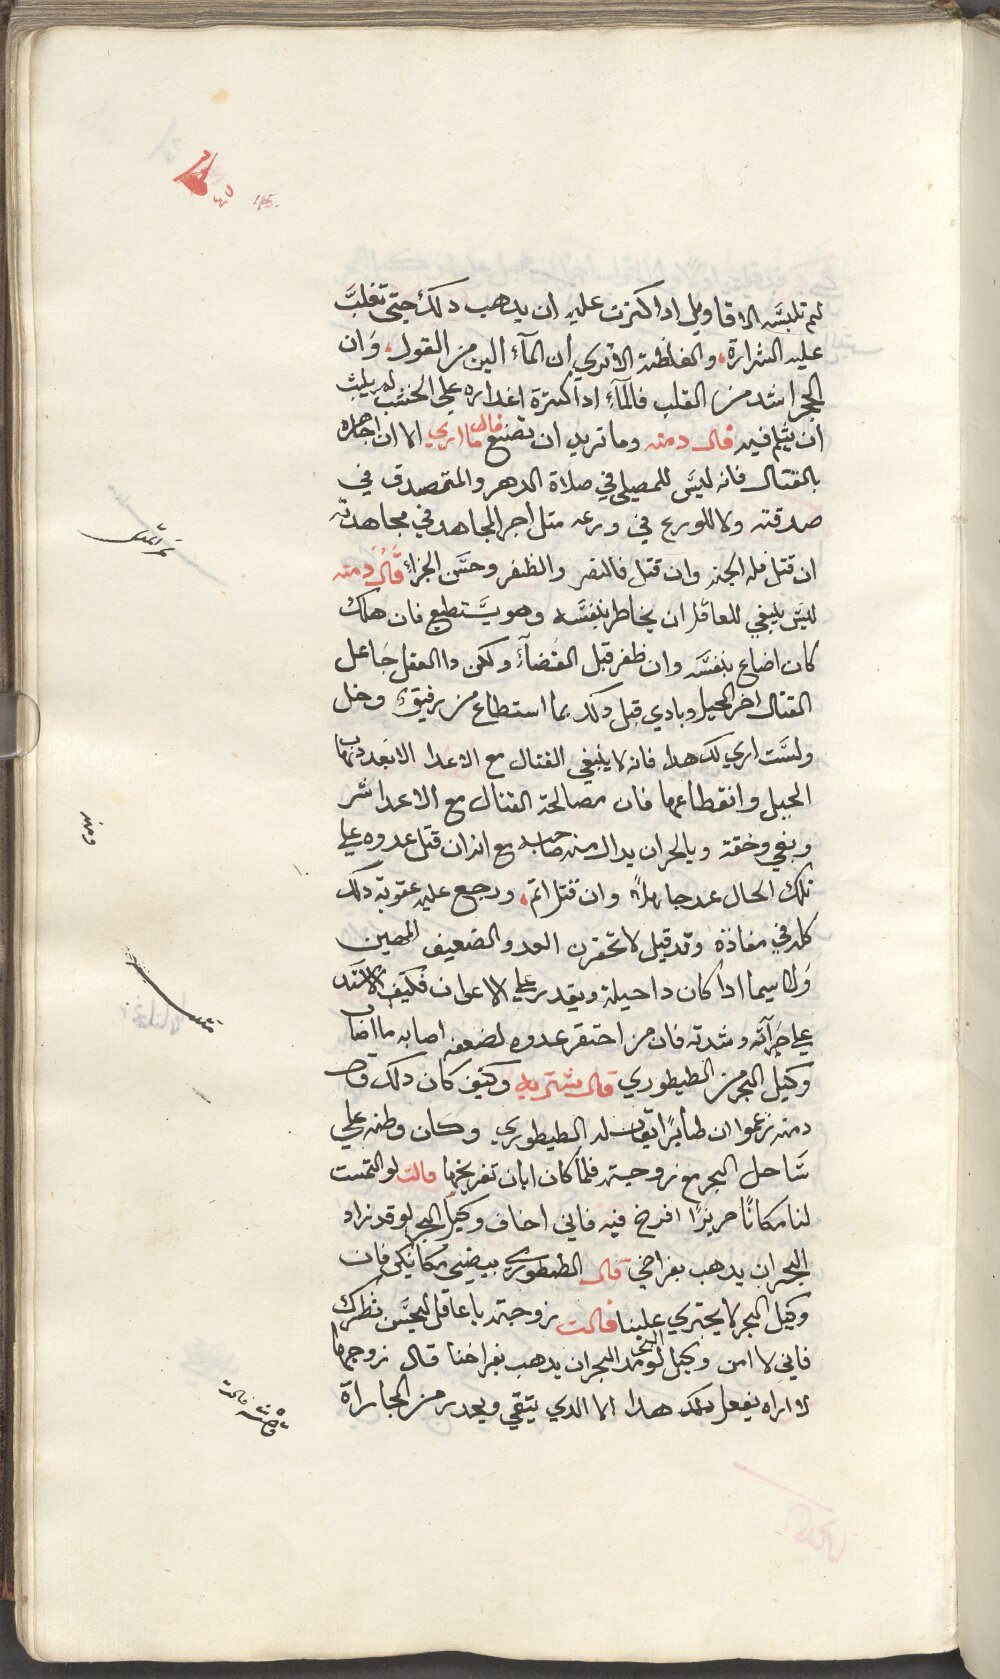 45.
ثم تلبسه الاقاويل ادا كترت عليه ان يدهب دلك حتى تغلب
عليه الشرارة، والغلظة الا تري ان المآء الين من القول، وان
الحجر اشد من القلب فالمآء ادا كترة اغداره علي الخشب لم يلبث
ان يتلم فيه قال دمنه وما تريد ان تصنع قال ما اري الا ان اجاهده
بالقتال فانه ليس للمصلي في صلاة الدهر والمتصدق في
صدقته ولا للورع في ورعه متل اجر المجاهد في مجاهدته
ان قتل فله الجنه وان قتل فالنصر والظفر وحسن الجزاء قال دمنه
ليس ينبغي للعاقل ان يخاطر بنفسه وهو يستطيع فان هلك
كان اضاع بنفسه وان ظفر قبل القضآء ولكن دا العقل جاعل
القتال اخر الحيل وبادي قبل دلك بما استطاع من رفيق وخل
ولست اري لك هدا فانه لا ينبغي القتال مع الاعدا الا بعد دهاب
الحيل وانقطاعها فان مصالحة القتال مع الاعدا شر
وبغي وخفة وبالحر ان يدال منه صاحبه مع انه ان قتل عدوه علي
تلك الحال عد جاهلاً وان قتل اتم، ورجع عليه عقوبة دلك
كله في مفادة وقد قيل لا تحقرن العدو الضعيف المهين
ولا سيما ادا كان دا حيلة ويقدر علي الاعوان فكيف الاسد
علي جرآته وشدته فان من احتقر عدوه لضعفه اصابه ما اصاب
وكيل البحر من الطيطوري قال شتربه وكيف كان دلك قال
دمنه زعموا ان طايرًا يقال له الطيطوري وكان وطنه علي
ساحل البحر مع زوجته فلما كان ابان تفريخها قالت لو التمست
لنا مكانًا حريزًا افرخ فيه فاني اخاف وكيل البحر لو قد زاد
البحر ان يدهب بفراخي قال الطيطوري بيضي مكانكي فان
وكيل البحر لا يجتري علينا قالت زوجته يا عاقل ليحسن نظرك
فاني لا امن وكيل البحر لو مد البحر ان يدهب بفراخنا قال زوجها
لا اراه يفعل دلك هدا اما الدي يتقي ويحدر من المجاراة